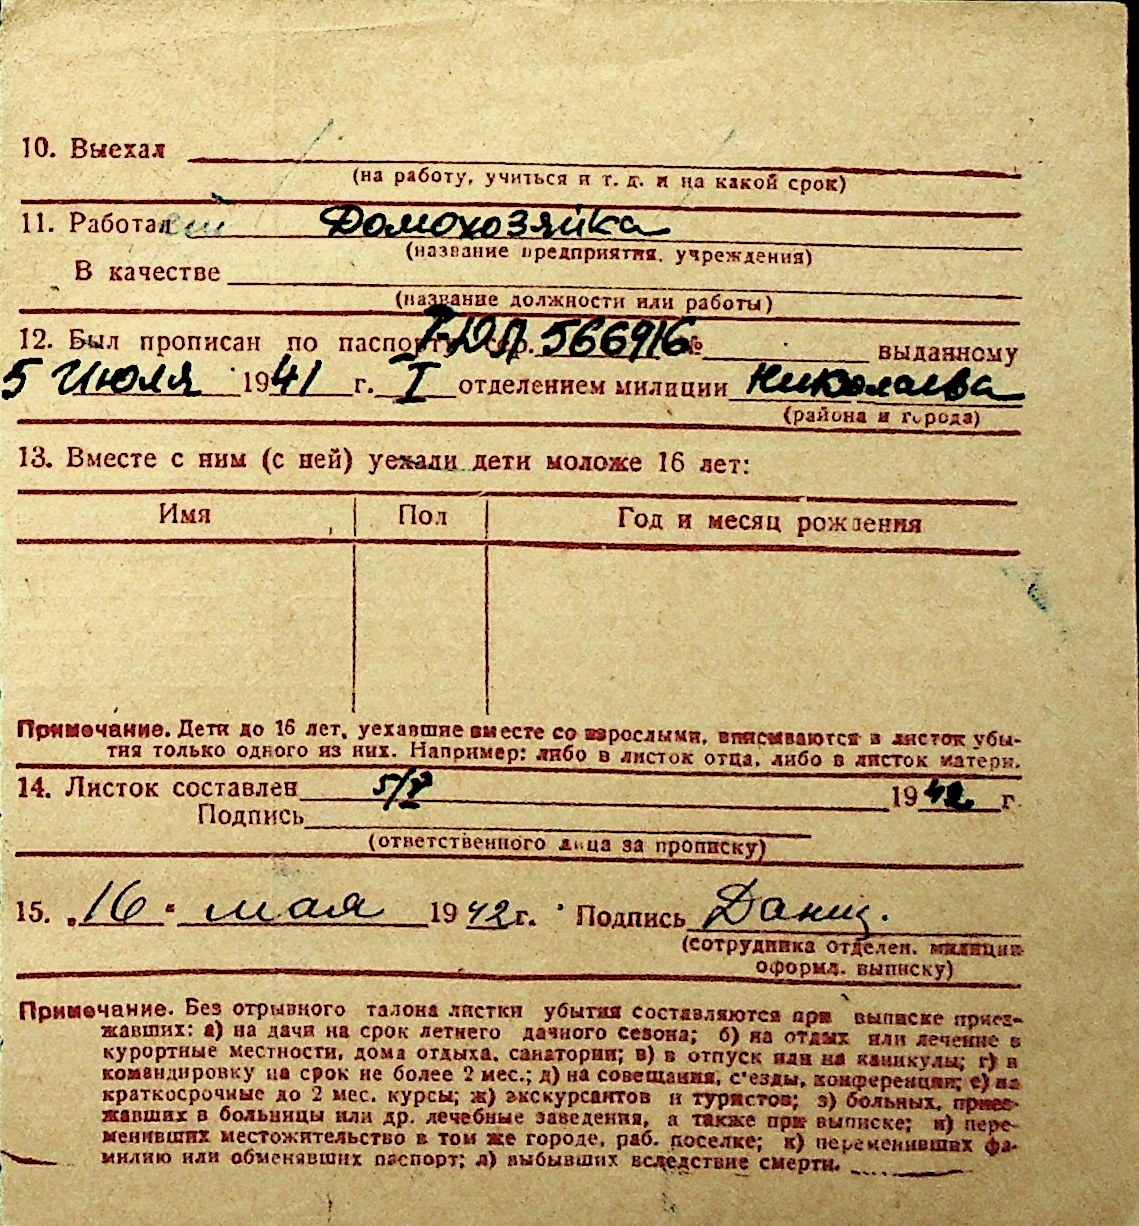 10. Выехал
(на работу, учиться и т. д. и на какой срок)
11. Работал Домохозяйка
(название предприятия, учреждения)
В качестве
(название должности или работы)
12. Был прописан по паспорту сер. 566916 № выданному
5 Июля 1941 г. I отделением милиции Николаева
(района и города)
13. Вместе с ним (с ней) уехали дети моложе 16 лет:
Имя Пол Год и месяц рождения
Примечание. Дети до 16 лет, уехавшие вместе со взрослыми, вписываются в листок убы-
тия только одного из них. Например: либо в листок отца, либо в листок матери.
14. Листок составлен 5/V 1942 г.
Подпись
(ответственного лица за прописку)
15. „16" мая 1942 г. Подпись Данищ.
(сотрудника отделен. милиции
оформл. выписку)
Примечание. Без отрывного талона листки убытия составляются при выписке приез-
жавших: а) на дачи на срок летнего дачного сезона; б) на отдых или лечение в
курортные местности, дома отдыха, санатории; в) в отпуск или на каникулы; г) в
командировку на срок не более 2 мес.; д) на совещания, с'езды, конференции; е) на
краткосрочные до 2 мес. курсы; ж) экскурсантов и туристов; з) больных, приез-
жавших в больницы или др. лечебные заведения, а также при выписке; и) пере-
менивших местожительство в том же городе, раб. поселке; к) переменивших фа-
милию или обменявших паспорт; л) выбывших вследствие смерти.